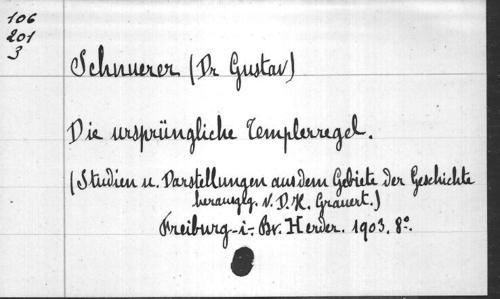 106
201
3
Schnuerer (Dr Gustav)
Die ursprüngliche Templerregel.
(Studien u. Darstellungen aus dem Gebiete der Geschichte
herausgg. v. D. H. Grauert.)
Freiburg-i-Br. Herder. 1903. 8°.